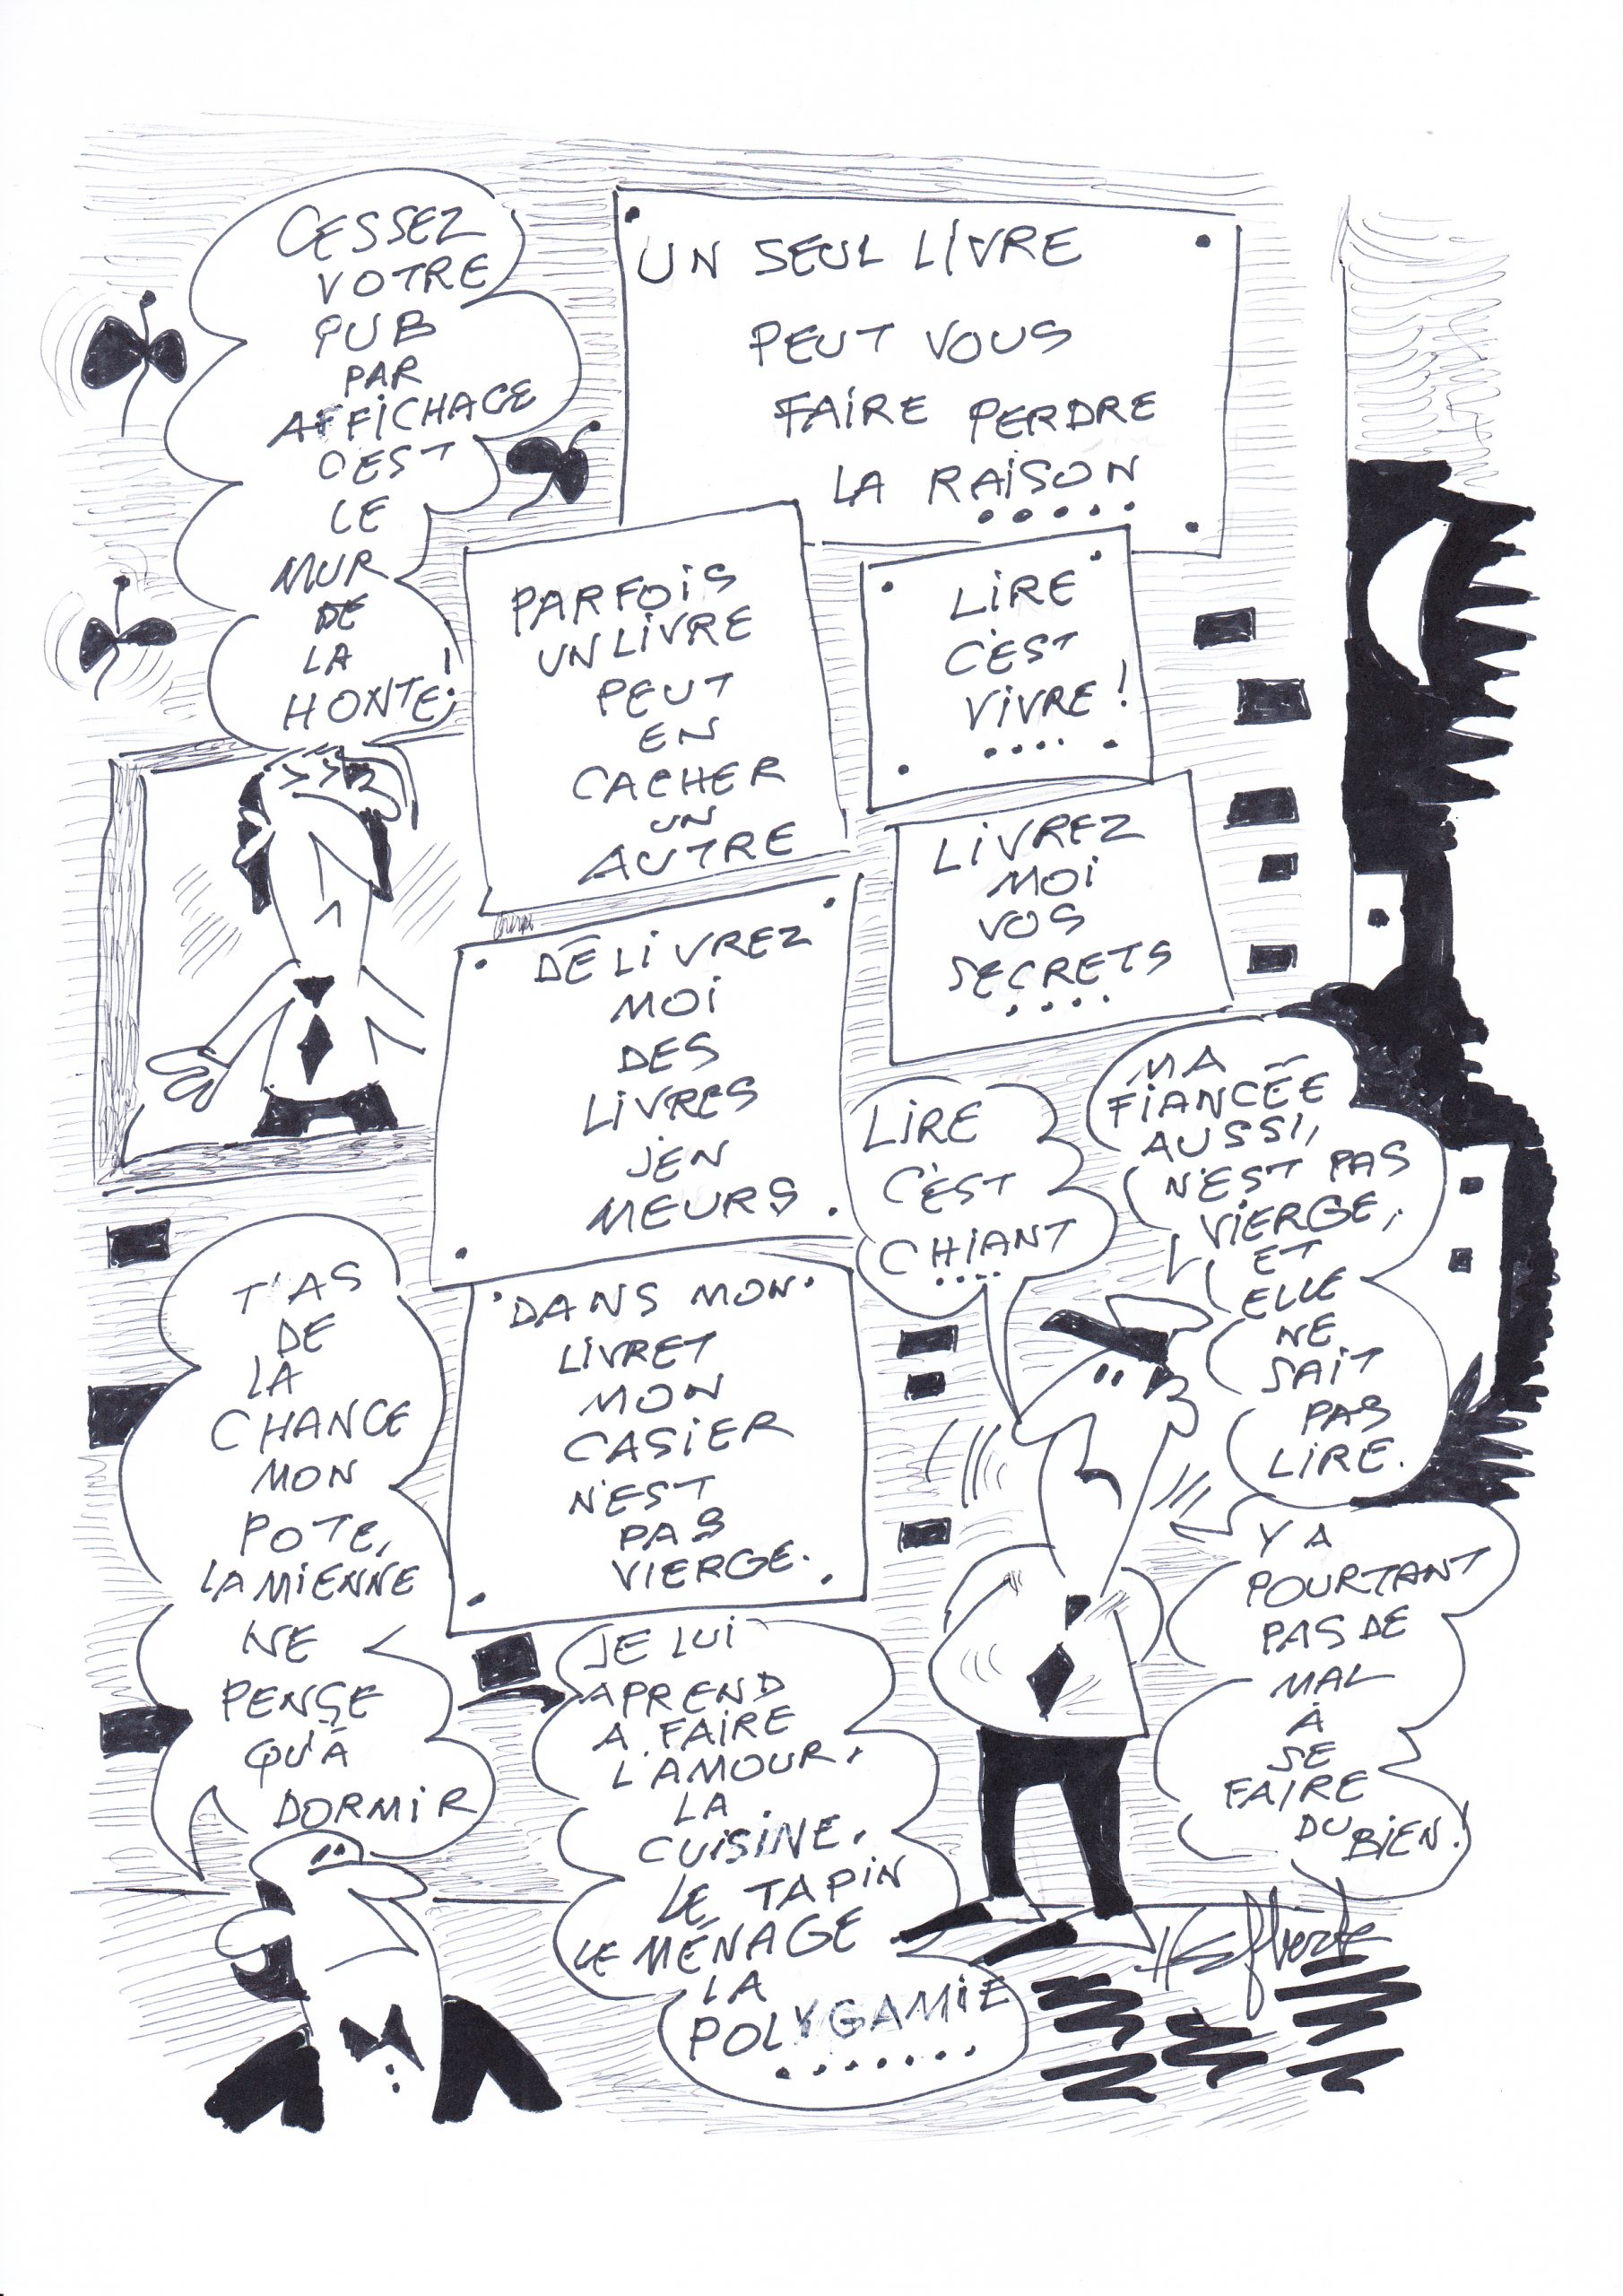 CESSEZ
VOTRE
PUB
PAR
AFFICHAGE
C'EST
LE
MUR
DE
LA
HONTE!
UN SEUL LIVRE
PEUT VOUS
FAIRE PERDRE
LA RAISON
.....
PARFOIS
UN LIVRE
PEUT
EN
CACHER
UN
AUTRE
LIRE
C'EST
VIVRE!
....
LIVREZ
MOI
VOS
SECRETS
....
DÉLIVREZ
MOI
DES
LIVRES
J'EN
MEURS.
DANS MON
LIVRET
MON
CASIER
N'EST
PAS
VIERGE.
LIRE
C'EST
CHIANT
....
MA
FIANCÉE
AUSSI,
N'EST PAS
VIERGE,
ET
ELLE
NE
SAIT
PAS
LIRE.
Y A
POURTANT
PAS DE
MAL
À
SE
FAIRE
DU BIEN!
T'AS
DE
LA
CHANCE
MON
POTE,
LA MIENNE
NE
PENSE
QU'À
DORMIR
JE LUI
APREND
A FAIRE
L'AMOUR,
LA
CUISINE,
LE TAPIN
LE MÉNAGE
LA
POLYGAMIE
.......